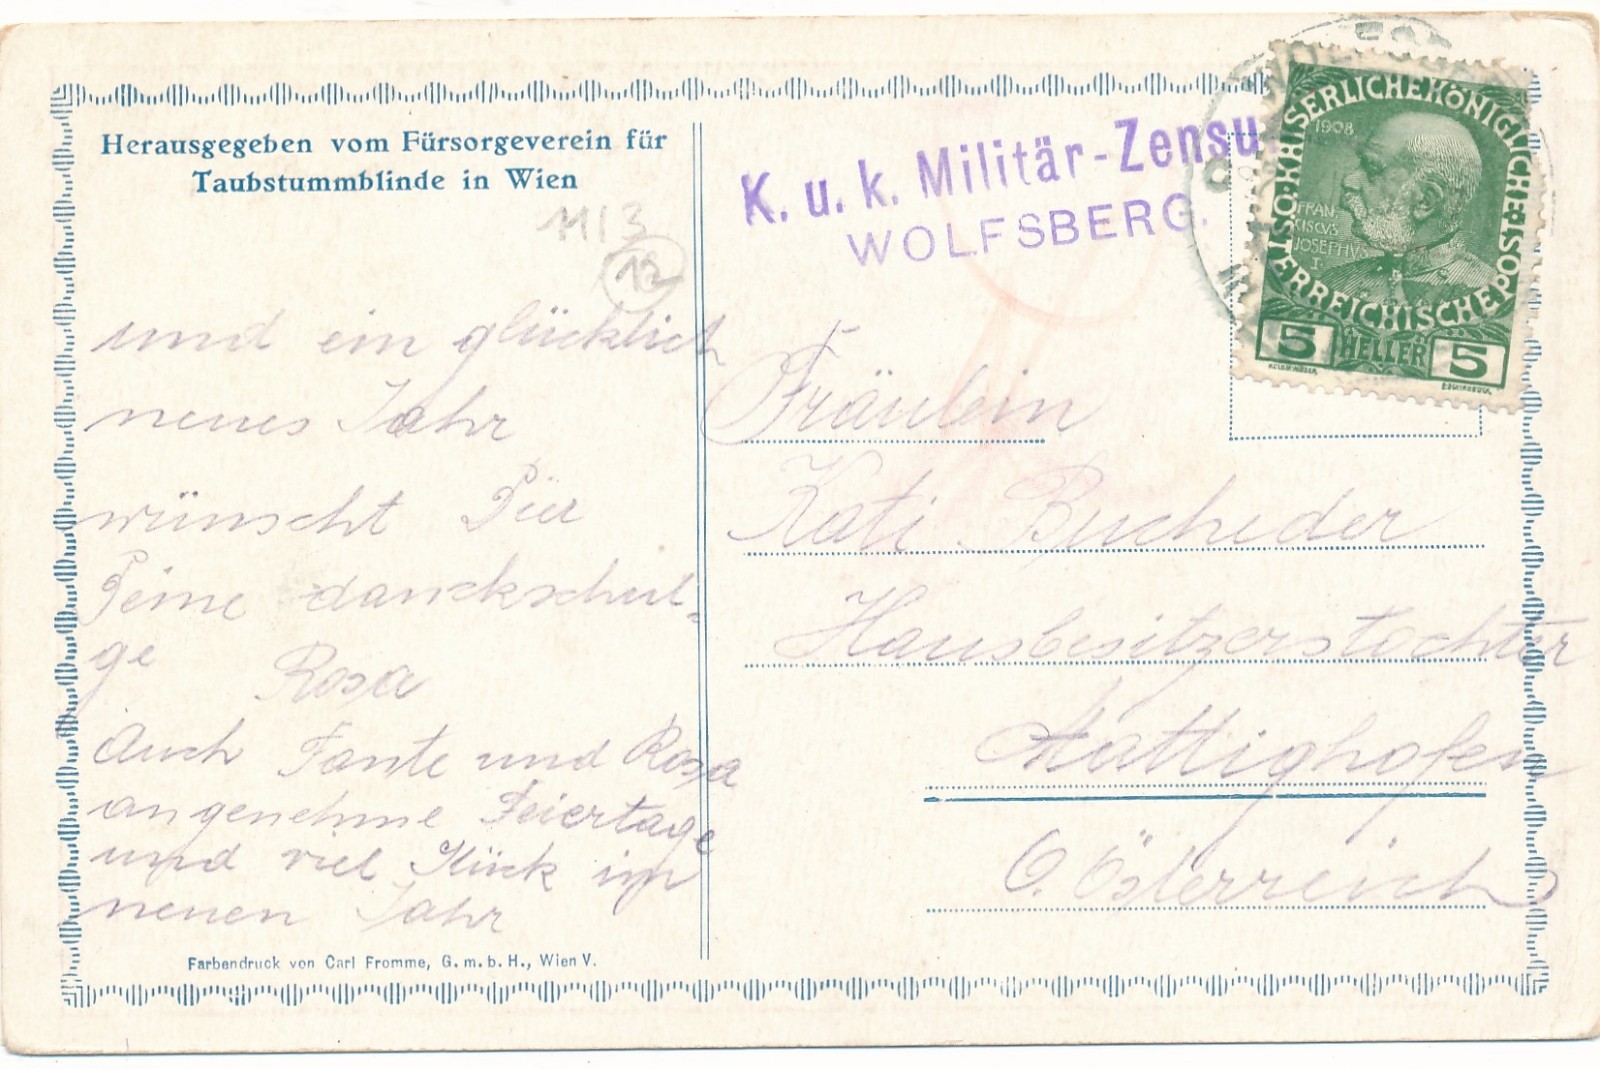 Herausgegeben vom Fürsorgeverein für
Taubstummblinde in Wien
11/3
12
und ein glücklich
neues Jahr
wünscht Dier
Deine danckschul-
ge Rosa
Auch Tante und Rosa
angenehme Feiertage
und viel Glück im
neuen Jahr
Farbendruck von Carl Fromme, G. m. b. H., Wien V.
K. u. k. Militär-Zensu
WOLFSBERG.
KAISERLICHE KÖNIGLICHE ÖSTERREICHISCHE POST
1908
FRAN
CISCVS
JOSEPHVS
I.
5 HELLER 5
Fräulein
Kati Bucheder
Hausbesitzerstochter
Mattighofen
O. Österreich